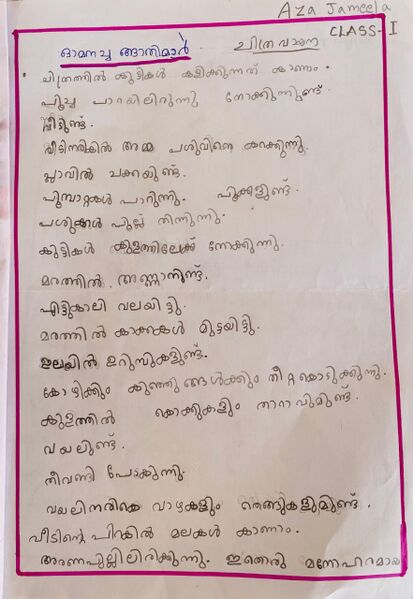 Aza Jameela
CLASS-I
ഓമനച്ച ങ്ങാതിമാർ. ചിത്രവായന
• ചിത്രത്തിൽ കുട്ടികൾ കളിക്കുന്നത് കാണാം.
പൂച്ച പാറയിലിരുന്ന് നോക്കുന്നുണ്ട്.
വീടുണ്ട്.
വീടിനരികിൽ അമ്മ പശുവിനെ കറക്കുന്നു.
പ്ലാവിൽ ചക്കയുണ്ട്.
പൂമ്പാറ്റകൾ പാറുന്നു. പൂക്കളുണ്ട്.
പശുക്കൾ പുല്ല് തിന്നുന്നു.
കുട്ടികൾ കുളത്തിലേക്ക് നോക്കുന്നു.
മരത്തിൽ അണ്ണാനുണ്ട്.
എട്ടുകാലി വലയിട്ടു.
മരത്തിൽ കാക്കകൾ മുട്ടയിട്ടു.
ഇലയിൽ ഉറുമ്പുകളുണ്ട്.
കോഴിക്കും കുഞ്ഞുങ്ങൾക്കും തീറ്റകൊടുക്കുന്നു.
കുളത്തിൽ കൊക്കുകളും താറാവുമുണ്ട്.
വയലുണ്ട്.
തീവണ്ടി പോകുന്നു.
വയലിനരികെ വാഴകളും തെങ്ങുകളുമുണ്ട്.
വീടിന്റെ പിറകിൽ മലകൾ കാണാം.
അരണപുല്ലിലിരിക്കുന്നു. ഇതൊരു മനോഹരമായ